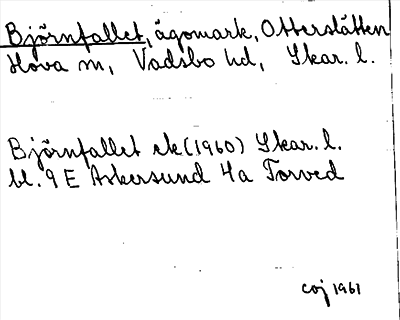 Björnfallet, ägomark, Otterslätten
Hova sn, Vadsbo hd, Skar. l.
Björnfallet ek (1960) Skar. l.
bl. 9 E Askersund 4a Torved
coj 1961